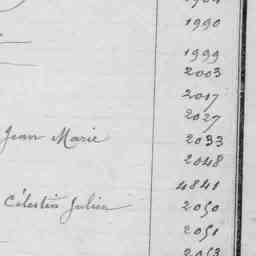 1990
1999
2003
2017
2027
Jean Marie 2033
2048
4841
Célestin Julien 2050
2051
2053